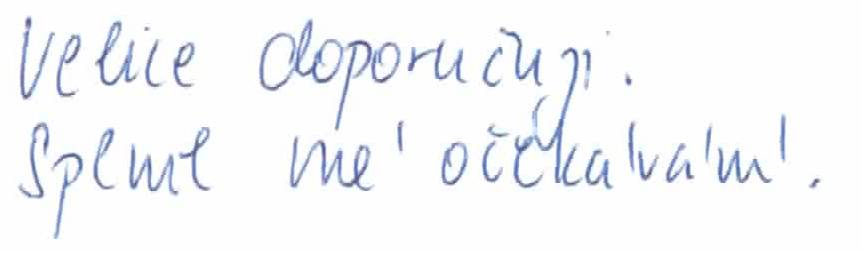 Velice doporučuji.
Splnilé mé očekávání.